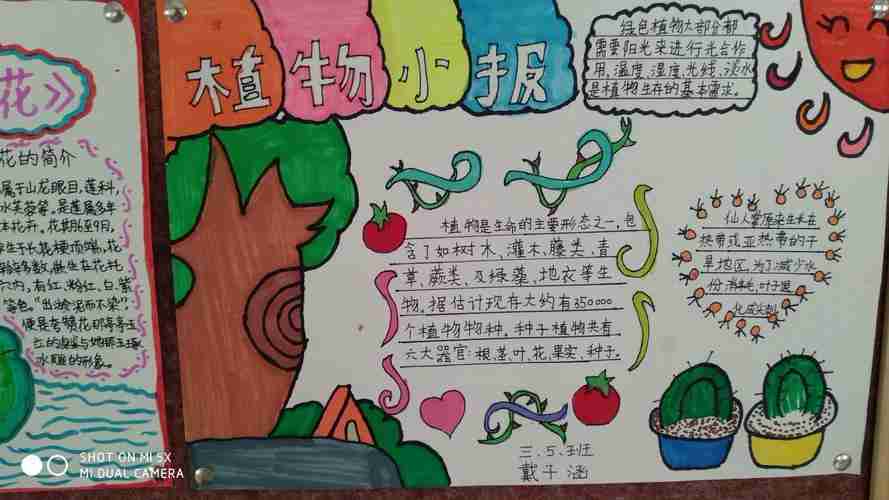 花》
花的简介
属于山龙眼目,莲科,
水芙蓉等。是莲属多年
本花卉。花期6至9月,
生于长花梗顶端,花
穴内,有红、粉红、白、紫
等色。"出淤泥而不染"
水雕的形象。
植物小报
绿色植物大部分都
需要阳光来进行光合作
用,温度、湿度、光线、淡水
是植物生存的基本需求。
植物是生命的主要形态之一,包
含了如树木、灌木、藤类、青
草、蕨类、及绿藻、地衣等生
物。据估计现存大约有350000
个植物物种。种子植物共有
六大器官:根、茎、叶、花、果实、种子。
仙人掌原来生长在
热带或亚热带的干
旱地区,为了减少水
份消耗,叶子退
化成尖刺
三.5.班
戴子涵
SHOT ON MI 5X
MI DUAL CAMERA